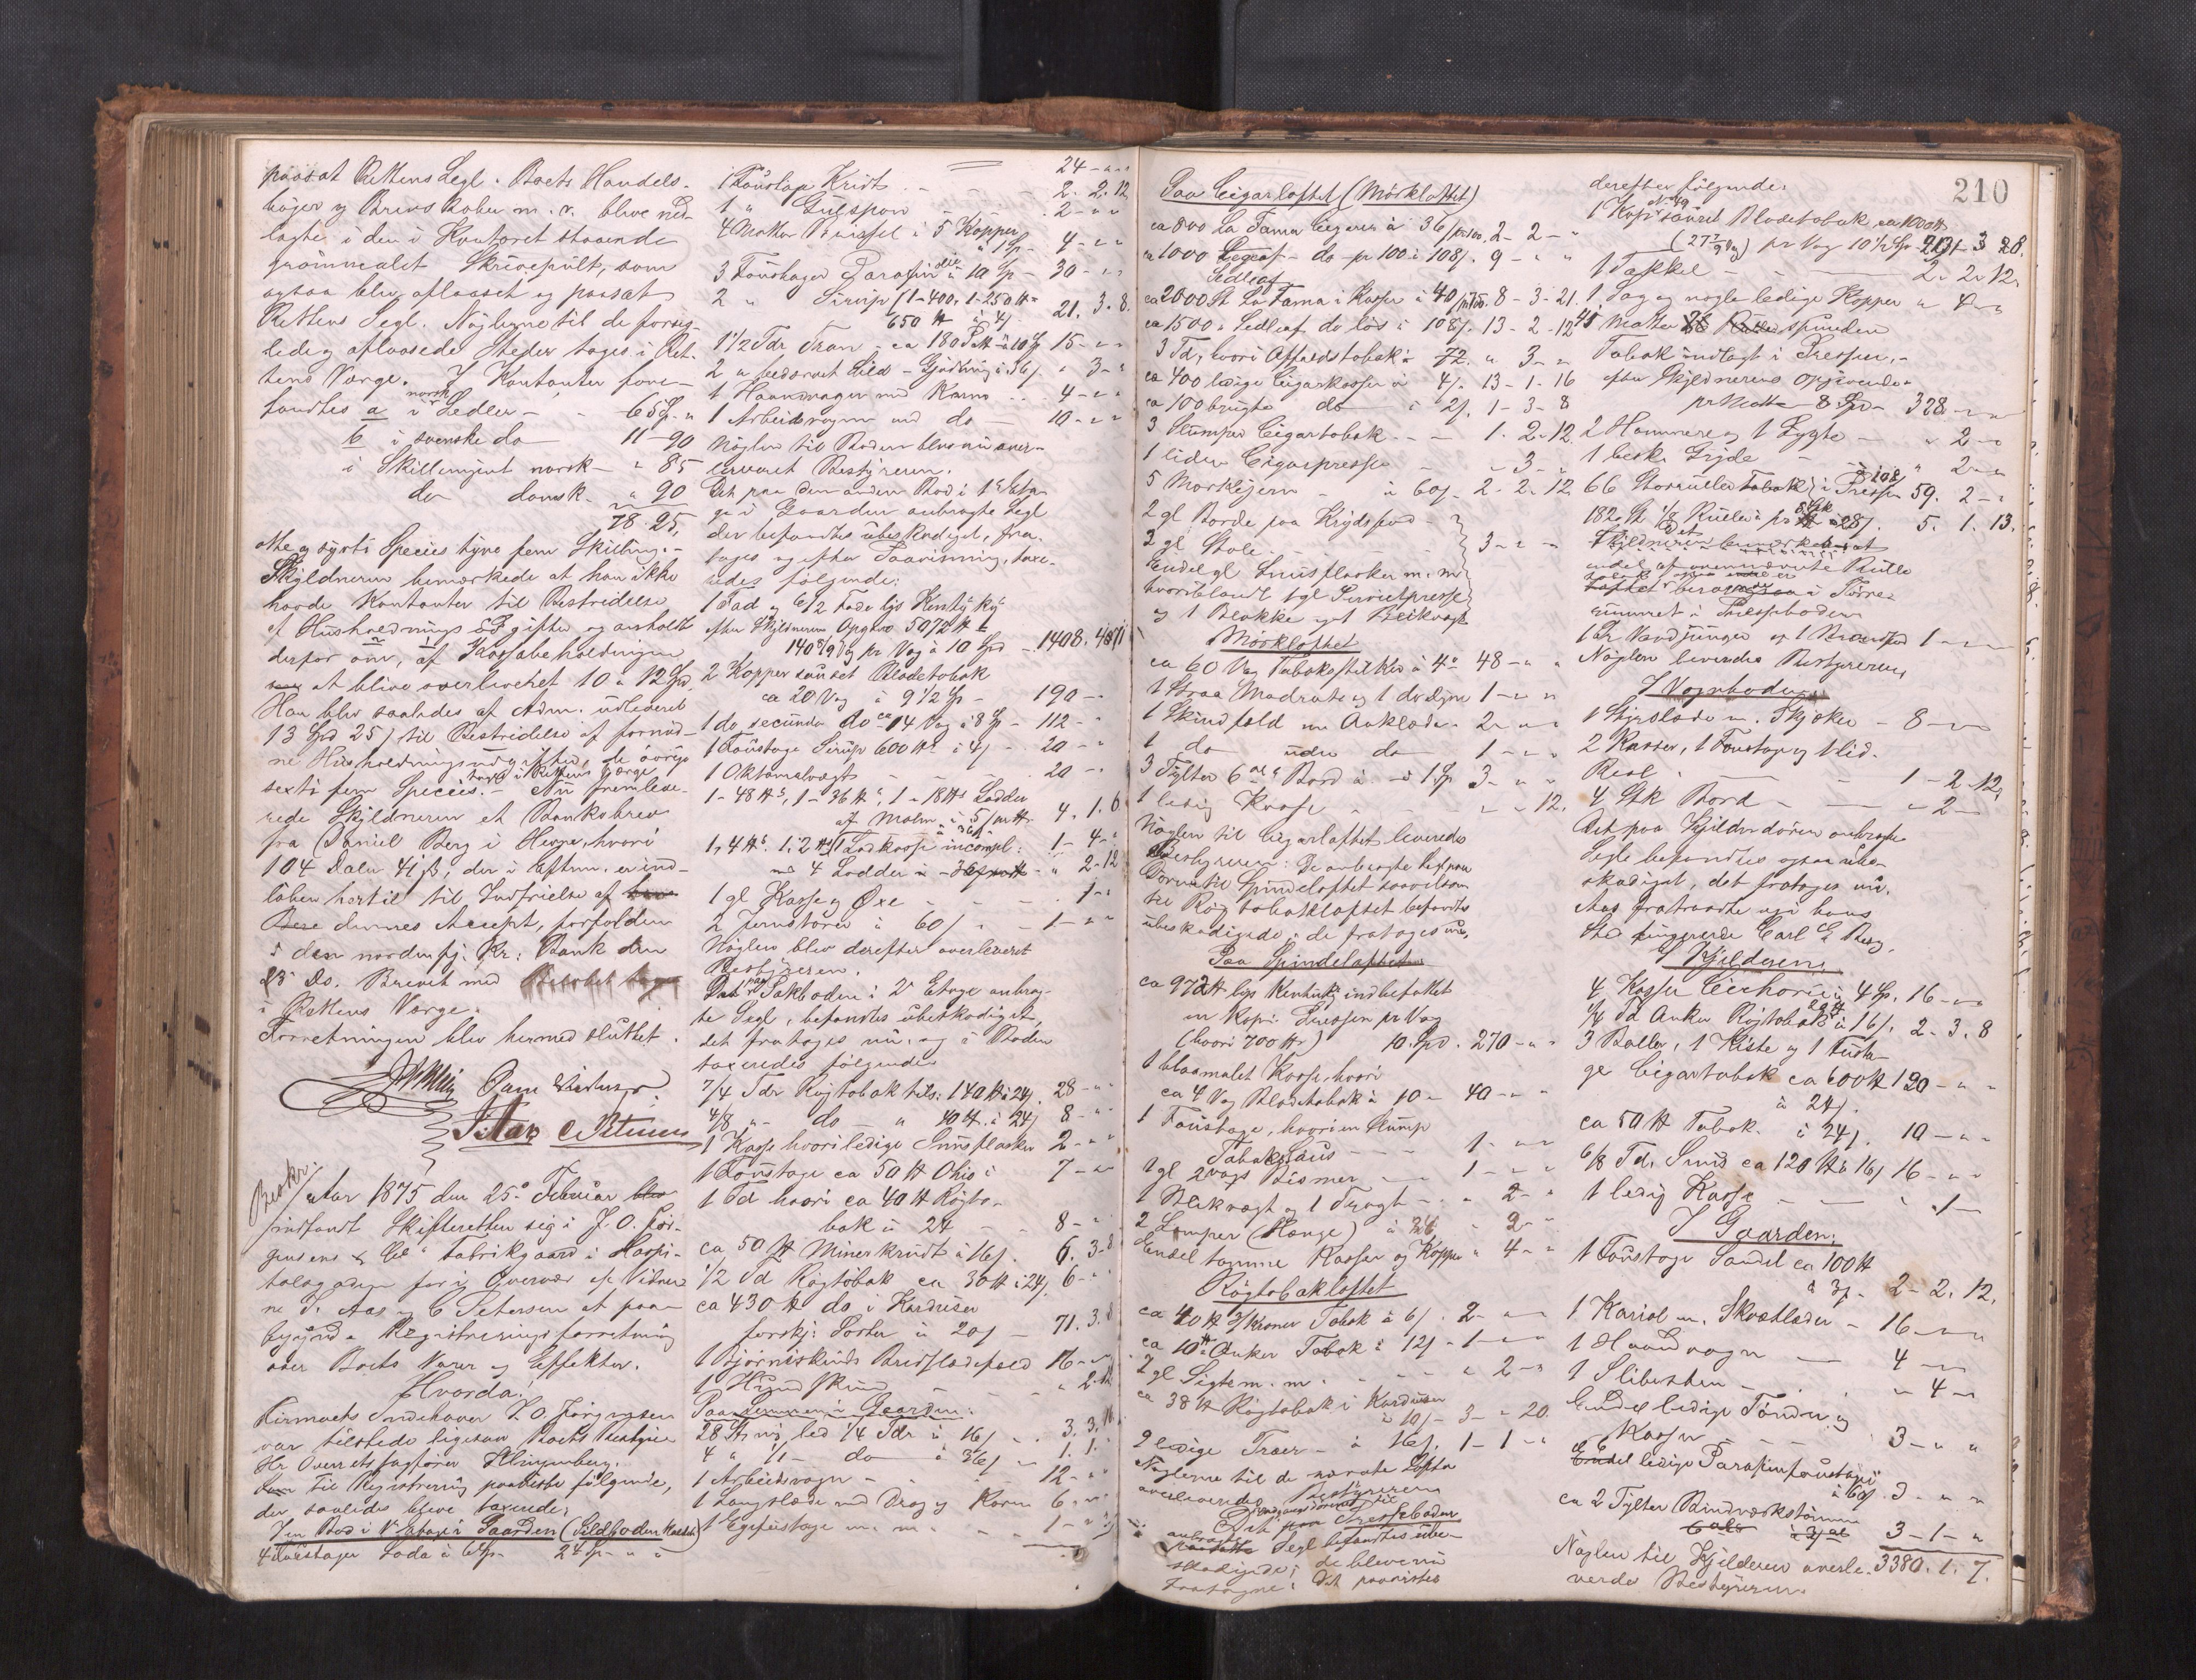 paasat Rettens Segl. Boets Handels-
bøger og Brevskaber m. v. blive ned-
lagte i den i Kontoret staaende
grønmalet Skrivepult, som
ogsaa blev aflaaset og paasat
Rettens Segl. Nøglerne til de forseg-
lede og aflaasede Steder toges i Ret-
tens Værge. I Kontanter fore-
fandtes a i norsk Sedler - 65 Sp. "
b i svenske do 11-90
i Skillemynt norsk - " 85
do dansk - " 90
78. 25,
otte og sytti Species tyve fem Skilling. -
Skyldneren bemærkede at han ikke
havde Kontanter til Bestridelse
af Husholdningsudgifter og anholdt
derfor om, af Kassabeholdningen
at blive overleveret 10 a 12 Spd.
Han blev saaledes af Adm. udleveret
13 Spd 25 s til Bestridelse af fornød-
ne Husholdningsudgifter, de øvrige
sexti fem Species toges i Rettens Værge. - Nu fremleve-
rede Skyldneren et Bankobrev
fra Daniel Berg i Herøe, hvori
104 Daler 41 ß, der i Efterm. er ind-
løben hertil til Indfrielse af
dennes Accept, forfalden
i den nordenfj. Kr: Bank den
23 ds. Brevet med Beløbet toges
i Rettens Værge.
Forretningen blev hermed sluttet.
T. Aas C Petersen
Beskr.
Aar 1875 den 25de Februar
indfandt Skifteretten sig i J. O. Jør-
gensens & Co Fabrikgaard i Hospi-
talsgaden for i Overvær af Vidner-
ne T. Aas og C Petersen at paa-
begynde Registreringsforretning
over Boets Varer og Effekter.
Hvorda!
Firmaets Indehaver J. O. Jørgensen
var tilstede ligesaa Boets Bestyrer
Hr Overretssagfører Klingenberg.
Til Registrering paavistes følgende,
der saaledes bleve taxerede:
I en Bod i 1ste Etage i Gaarden (Sildboden kaldet)
4 Fustager Soda à 6 Sp. 24 Sp. " "
24 - " "
1 Foustage Kridt - - - 2. 2. 12
1 " Gulspon - 2 - " "
4 Matter Brissel i 5 Kopper à 1 Sp - 4 - " "
3 Foustager Parafinolie à 10 Sp - 30 - " "
2 " Sirup (1-400, 1-250 ℔ =
650 ℔ à 4 s 21. 3. 8.
1 1/2 Tdr Tran - ca 180 Pot à 10 s 15 - " "
2 " bedærvet Sild - Gjødning à 36 s " 3 - "
1 Haandvogn med Karm - 4 - " "
1 Arbeidsvogn med do - 10 - " "
Nøglen til Boden blev nu over-
leveret Bestyreren.
Det paa den anden Bod i 1ste Eta-
ge i Gaarden anbragte Segl
der befandtes ubeskadiget, fra-
toges og efter Paavisning, taxe-
redes følgende:
1 Fad og 6/2 Fade lys Kentyky
efter Skyldnerens Opgave 5072 ℔ =
140 8/9 Vog pr Vog à 10 Spd - 1408. 4.
2 Kopper sauset Bladetobak
ca 20 Vog à 9 1/2 Sp - 190 - "
1 do secunda do ca 14 Vog à 8 Sp - 112 - "
1 Foustage Sirup 600 ℔ à 4 s - 20 - "
1 Oktamalvægt - - 20 - "
1 - 48 ℔s, 1 - 36 ℔s, 1 - 18 ℔s Lodder
af Malm à 5 s pr ℔ 4. 1. 6
1, 4 ℔s. 1, 2 ℔s, 1 Lodkasse incompl: 1 - 4 -
4 Lodder à " 2-12
1 gl Kasse og Øxe - - . 1 - "
2 Jernstører à 60 s - 1 - " "
Nøglen blev derefter overleveret
Bestyreren.
Det paa Sakboden i 2de Etage anbrag-
te Segl, befandtes ubeskadiget,
det fratoges nu, og i Boden
taxeredes følgende
7/4 Tdr Røgtobak tils: 140 ℔ à 24 s. 28 - " "
4/8 " - do " 40 ℔. à 24 s 8 - " "
1 Kasse hvori ledige Snusflasker 2 - " "
1 Foustage ca 50 ℔ Ohio 7 - " "
1 Td hvori ca 40 ℔ Røgto-
bak à 24 - - 8 - "
ca 50 ℔ Minerkrudt à 16 s. 6. 3-8
1/2 Td Røgtobak ca 30 ℔ à 24 s. 6 - "
ca 430 ℔ do i Karduser
forskj: Sorter à 20 s - 71. 3. 8
1 Bjørneskinds Bredslædefæld 16 - " "
1 Hundskind - " 2.12
Paa Lemmen i Gaarden:
28 Stk ny led 1/4 Tdr à 16 s . 3. 3. 16
4 " 1/1 - do à 36 s - 1. 1. "
1 Arbeidsvogn - - 12 - " "
1 Langslæde med Drag og Karm 6. - "
1 Egefustage m. m. - - 1 - " "
210
Paa Cigarloftet (Mørkloftet)
ca 800 La Fama Cigarer à 36 s pr 100, 2 - 2 - "
" 1000 Segeaf - do - pr 100 à 108 s. 9 - " "
Sedleaf
ca 2000 St La Fama i Kasser à 40 s pr 100. 8 - 3 - 21.
ca 1500 " Sedleaf do løs à 108 s. 13 - 2 - 12
3 Td, hvori Affaldstobak à 72. " 3 - "
ca 400 ledige Cigarkasser à 4 s. 13 - 1 - 16
ca 100 brugte do à 2 s. 1 - 3 - 8
3 Slumper Cigartobak - - 1. 2. 12.
1 liden Cigarpresse - - " 3 - "
5 Mærkejern - à 60 s. 2 - 2. 12
2 gl Borde paa Krydsfod -
2 gl Stole - - 3 - " "
Endel gl Snusflasker m. m
hvoriblandt 1 gl Servietpresse
og 1 Blakke og 1 Blikvægt
Mørkloftet
ca 60 Vog Tobakstilke à 4 s 48 - " "
1 Straa Madrats og 1 do dyne 1 - " "
1 Skindfeld m Aaklæde - 2 - " "
1 do uden do - 1 - " "
3 Tylter 6 al. Bord à 1 Sp 3 - " "
1 ledig Kasse - - " - 12.
Nøglen til Cigarloftet leveredes
Bestyreren. De anbragte Segl paa
Dørene til Spindeloftet saavelsom
til Røgtobaksloftet befandtes
ubeskadigede; de fratoges nu,
Paa Spindeloftet
ca 972 ℔ lys Kentucky indbefattet
en Kopi Pressen pr Vog
(hvori 700 ℔) 10. Spd. 270 - " "
1 blaamalet Kasse, hvori
ca 4 Vog Bladetobak à 10 - 40 - " "
1 Foustage, hvori en Slump
Tobakssaus - - - 1 - " "
1 gl 2 Vogs Bismer - 1 - " "
1 Blikvægt og 1 Tragt - " 2 - "
2 Lamper (Hænge) à " 2 - "
Endel tomme Kasser og Kopper " 4 - "
Røgtobakloftet
ca 40 ℔ 3/Kroner Tobak à 6 s. 2 - " "
ca 10 ℔ Anker Tobak à 12 s - 1 - " "
2 gl Sigte m. m. - - " 2 - "
ca 38 ℔ Røgtobak i Karduser
à 10 s - 3 - " 20.
9 ledige Traer - à 16 s. 1 - 1 - "
Nøglerne til de nævnte Lofter
overleveredes Bestyreren
Det Dør til Pressebodens
anbragte Segl befandtes ube-
skadigede; de bleve nu
fratagne; det paavistes
derefter følgende:
1 Kopi sauset Bladetobak ca 1000 ℔
(27 7/9 Vog) pr Vog 10 1/2 Sp 291 - 3 28.
1 Takkel - - - 2. 2. 12.
1 Sag og nogle ledige Kopper " 4 - "
41 Matter spunden
Tobak indlagt i Presser, -
efter Skyldnerens Opgivende
pr Matte 8 Spd - 328 - " "
2 Hammere og 1 Lygte - " 2 - "
1 besk. Gryde - " 2 - "
66 Storruller i Presser à 108 59. 2 - "
182 St 1/8 Ruller pr Stk à 28 s. 5. 1. 13.
Skyldneren bemærkede at
endel af ovennævnte Rulle
beroede i Tørre-
rummet i Pressboden
1 Pr Vandjunger og 1 Brandspd 1 - " "
Nøglen leveredes Bestyreren,
I Vognboden
1 Spidsslæde m. Skjæker - 8 - " "
2 Kasser, 1 Foustage og 1 lid.
Real - - 1 - 2. 12,
4 Stk Bord - - " 2 -
Det paa Kjelderdøren anbragte
Segl befandtes ogsaa ube-
skadiget, det fratoges nu.
Aas fratraadte og i hans
Sted fungerede Carl E Berg.
I Kjelderen,
4 Kasser Cichorie à 4 Sp. 16 - " "
1/4 Td Anker Røgtobak 20 ℔ à 16 s. 2. 3. 8
3 Baller, 1 Kiste og 1 Fusta-
ge Cigartobak ca 600 ℔ 120 - " "
à 24 s.
ca 50 ℔ Tobak. à 24 s. 10 - " "
6/8 Td. Snus ca 120 ℔ à 16 s 16 - " "
1 ledig Kasse - - " 1 -
I Gaarden:
1 Foustage Sandel ca 100 ℔
à 3 s - 2 - 2. 12.
1 Kariol m. Skvætlæder - 16 - " "
1 Haandvogn - 4 - "
1 Slibesten - . . " 4 -
Endel ledige Tønder og
Kasser - 3 - " "
6 ledige Parafinfoustager
à 60 s. 3 - " "
ca 2 Tylter Bindværkstømmer
3 - 1 - "
Nøglen til Kjelderen overle- 3380. 1. 7.
veredes Bestyreren.